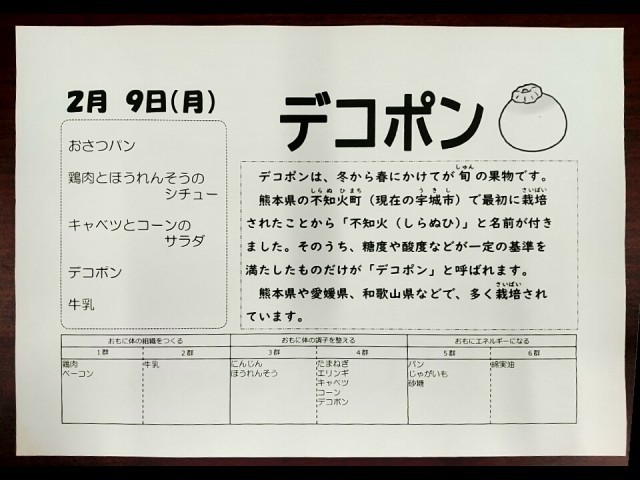 2月 9日(月)
デコポン
おさつパン
鶏肉とほうれんそうの
シチュー
キャベツとコーンの
サラダ
デコポン
牛乳
デコポンは、冬から春にかけてが旬の果物です。
しゅん
熊本県の不知火町（現在の宇城市）で最初に栽培
しらぬひまち うきし さいばい
されたことから「不知火（しらぬひ）」と名前が付き
ました。そのうち、糖度や酸度などが一定の基準を
満たしたものだけが「デコポン」と呼ばれます。
熊本県や愛媛県、和歌山県などで、多く栽培され
さいばい
ています。
おもに体の組織をつくる おもに体の調子を整える おもにエネルギーになる
1群 2群 3群 4群 5群 6群
鶏肉 牛乳 にんじん たまねぎ パン 綿実油
ベーコン ほうれんそう エリンギ じゃがいも
キャベツ 砂糖
コーン
デコポン